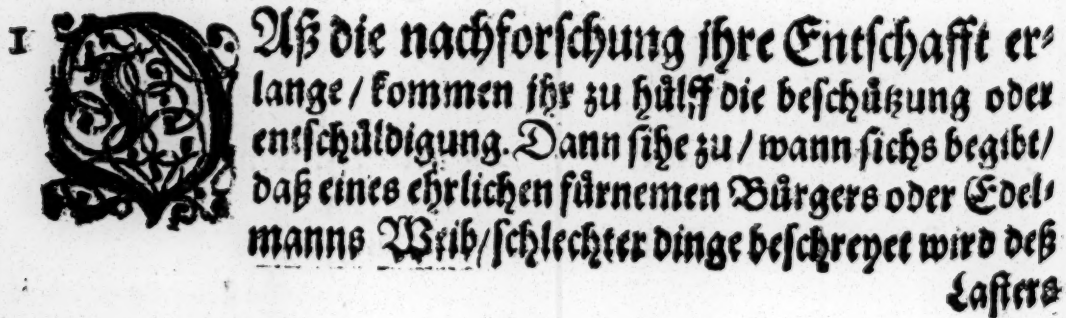 1 DAß die nachforſchung jhre Entſchafft er⸗
lange / kommen jhr zu huͤlff die beſchuͤtzung oder
entſchuͤldigung. Dann ſihe zu / wann ſichs begibt /
daß eines ehrlichen fuͤrnemen Buͤrgers oder Edel⸗
manns Weib / ſchlechter dinge beſchreyet wird deß
Laſters